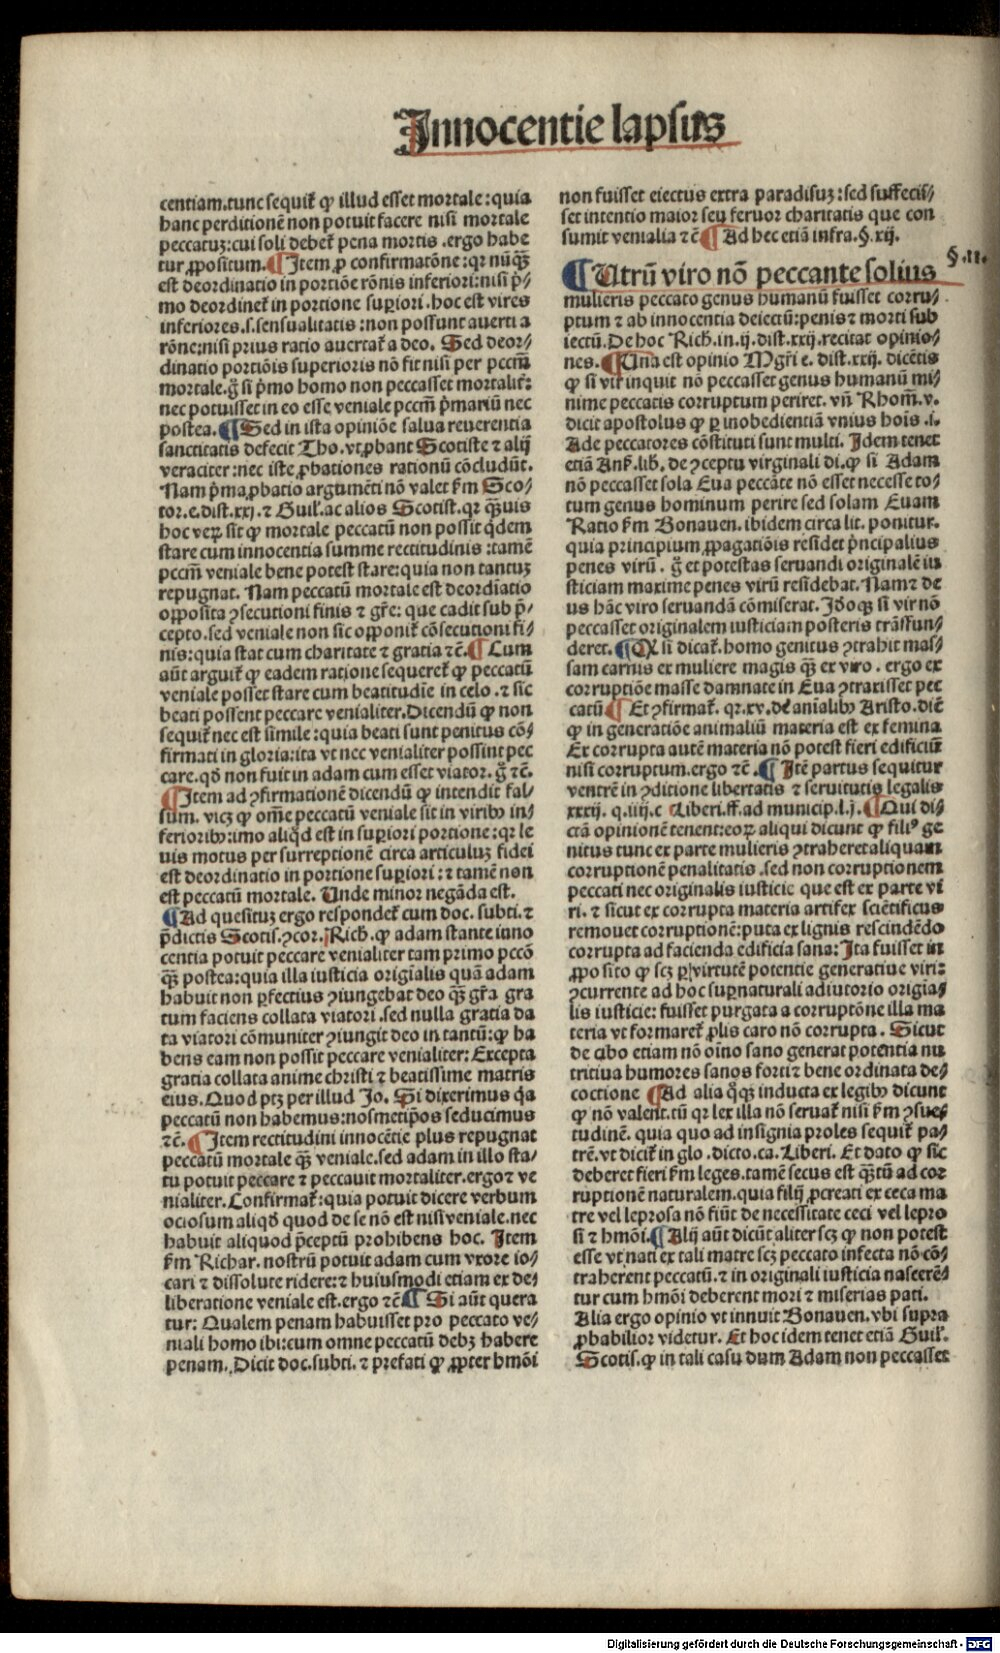 Innocentie lapsus
centiam.tunc sequit̃ ꝙ illud esset mortale:quia
hanc perditionē non potuit facere nisi mortale
peccatuz:cui soli debet̃ pena mortis .ergo habe
tur ꝓpositum.¶ Item ꝓ confirmatōne:qr nūqȝ̄
est deordinatio in portiōe rōnis inferiori:nisi p̄-
mo deordinet̃ in portione suꝑiori .hoc est vires
inferiores.s.sensualitatis :non possunt auerti a
rōne:nisi prius ratio auertat̃ a deo. Sed deor-
dinatio portiōis superioris nō fit nisi per pccm̄
mortale.g̊ si p̄mo homo non peccasset mortalit̃:
nec potuisset in eo esse veniale pccm̄ p̄mariū nec
postea.¶ Sed in ista opiniōe salua reuerentia
sanctitatis defecit Tho.vt ꝓbant Scotiste ⁊ alij
veraciter:nec iste ꝓbationes rationū cōcludūt.
Nam p̄ma ꝓbatio argumēti nō valet ẜm Sco-
tor.e.dist.xxj.⁊ Guil̃.ac alios Scotist.qr qȝ̄uis
hoc veꝝ sit ꝙ mortale peccatū non possit q̇dem
stare cum innocentia summe rectitudinis :tamē
pccm̄ veniale bene potest stare:quia non tantuz
repugnat. Nam peccatū mortale est deordīatio
opposita ꝯsecutioni finis ⁊ gr̄e: que cadit sub p̄-
cepto.sed veniale non sic opponit̃ cōsecutioni fi-
nis:quia stat cum charitate ⁊ gratia ⁊c̄.¶ Cum
aūt arguit̃ ꝙ eadem ratione sequeret̃ ꝙ peccatū
veniale posset stare cum beatitudīe in celo .⁊ sic
beati possent peccare venialiter.Dicendū ꝙ non
sequit̃ nec est simile :quia beati sunt penitus cō-
firmati in gloria:ita vt nec venialiter possint pec
care.qđ non fuit in adam cum esset viator. g̊ ⁊c̄.
¶ Item ad ꝯfirmationē dicendū ꝙ intendit fal-
sum. vicȝ ꝙ om̄e peccatū veniale sit in viribꝫ in-
ferioribꝫ:imo aliqd est in suꝑiori portione :qr le
uis motus per surreptionē circa articuluz fidei
est deordinatio in portione suꝑiori :⁊ tamē non
est peccatū mortale. Unde minor negāda est.
¶ Ad quesituz ergo respondet̃ cum doc. subti.⁊
p̄dictis Scotis.ꝯcor. Rich.ꝙ adam stante inno
centia potuit peccare venialiter tam primo pccō
qȝ̄ postea:quia illa iusticia origīalis quā adam
habuit non ꝑfectius ꝯiungebat deo qȝ̄ gr̄a gra
tum faciens collata viatori .sed nulla gratia da
ta viatori cōmuniter ꝯiungit deo in tantū:ꝙ ha
bens eam non possit peccare venialiter: Excepta
gratia collata anime christi ⁊ beatissime matris
eius.Quod ptȝ per illud Jo. Si dixerimus qa
peccatū non habemus:nosmetip̄os seducimus
⁊c̄.¶ Item rectitudini innocētie plus repugnat
peccatū mortale qȝ̄ veniale.sed adam in illo sta-
tu potuit peccare ⁊ peccauit mortaliter.ergo⁊ ve
nialiter.Confirmat̃:quia potuit dicere verbum
ociosum aliqđ quod de se nō est nisi veniale.nec
habuit aliquod p̄ceptū prohibens hoc. Item
ẜm Richar. nostrū potuit adam cum vxore io-
cari ⁊ dissolute ridere:⁊ huiusmodi etiam ex de-
liberatione veniale est.ergo ⁊c̄¶ Si aūt quera
tur: Qualem penam habuisset pro peccato ve-
niali homo ibi:cum omne peccatū debȝ habere
penam. Dicit doc.subti.⁊ prefati ꝙ ꝓpter hmōi
non fuisset eiectus extra paradisuz :sed suffecis-
set intentio maior seu feruor charitatis que con
sumit venialia ⁊c̄¶ Ad hec etiā infra.§.xij.
§.II.
¶ Utrū viro nō peccante solius
mulieris peccato genus humanū fuisset corru-
ptum ⁊ ab innocentia deiectū:penis ⁊ morti sub
iectū.De hoc Rich.in.ij.dist.xxij.recitat opinio-
nes.¶ Una est opinio Mgr̄i e. dist.xxij. dicētis
ꝙ si vir inquit nō peccasset genus humanū mi-
nime peccatis corruptum periret. vn̄ Rhom̄.v.
dicit apostolus ꝙ ꝑ inobedientiā vnius hoīs .i.
Ade peccatores cōstituti sunt multi. Idem tenet
etiā Anẜ.lib. de ꝯceptu virginali di.ꝙ si Adam
nō peccasset sola Eua peccāte nō esset necesse to-
tum genus hominum perire sed solam Euam
Ratio ẜm Bonauen.ibidem circa lit. ponitur.
quia principium ꝓpagatiōis residet p̄ncipalius
penes virū. g̊ et potestas seruandi originalē iu
sticiam maxime penes virū residebat. Nam⁊ de
us hāc viro seruandā cōmiserat. Idoqȝ si vir nō
peccasset originalem iusticiam posteris trāsfun-
deret.¶ Q̄ si dicat̃. homo genitus ꝯtrahit mas-
sam carnis ex muliere magis qȝ̄ ex viro . ergo ex
corruptiōe masse damnate in Eua ꝯtraxisset pec
catū¶ Et ꝯfirmat̃. qr.xv.de aīalibꝫ Aristo.dic̄
ꝙ in generatiōe animaliū materia est ex femina
Ex corrupta autē materia nō potest fieri edificiū
nisi corruptum.ergo ⁊c̄ .¶ Itē partus sequitur
ventrē in ꝯditione libertatis ⁊ seruitutis legalis
xxxij. q.iiij.c Liberi.ff.ad municip.l.j.¶ Qui di-
ctā opinionē tenent:eoꝝ aliqui dicunt ꝙ filiꝰ ge
nitus tunc ex parte mulieris ꝯtraheret aliquam
corruptionē penalitatis .sed non corruptionem
peccati nec originalis iusticie que est ex parte vi
ri. ⁊ sicut ex corrupta materia artifex sciētificus
remouet corruptionē:puta ex lignis rescindēdo
corrupta ad facienda edificia sana: Ita fuisset in
ꝓposito ꝙ scȝ ꝑ virtutē potentie generatiue viri:
ꝯcurrente ad hoc suꝑnaturali adiutorio origia-
lis iusticie: fuisset purgata a corruptōne illa ma
teria vt formaret̃ ꝓlis caro nō corrupta . Sicut
de cibo etiam nō oīno sano generat potentia nu
tritiua humores sanos forti⁊ bene ordinata de-
coctione ¶ Ad alia q̄qȝ inducta ex legibꝫ dicunt
ꝙ nō valent.tū qr lex illa nō seruat̃ nisi ẜm ꝯsue-
tudinē. quia quo ad insignia proles sequit̃ pa-
trē.vt dicit̃ in glo .dicto.ca.Liberi. Et dato ꝙ sic
deberet fieri ẜm leges.tamē secus est qȝ̄tū ad cor
ruptionē naturalem.quia filij ꝓcreati ex ceca ma
tre vel leprosa nō fiūt de necessitate ceci vel lepro
si ⁊ hmōi.¶ Alij aūt dicūt aliter scȝ ꝙ non potest
esse vt nati ex tali matre scȝ peccato infecta nō cō-
traherent peccatū.⁊ in originali iusticia nascerē-
tur cum hmōi deberent mori ⁊ miserias pati.
Alia ergo opinio vt innuit Bonauen.vbi supra
ꝓbabilior videtur. Et hoc idem tenet etiā Guil̃.
Scotis.ꝙ in tali casu dum Adam non peccasset
Digitalisierung gefördert durch die Deutsche Forschungsgemeinschaft - DFG